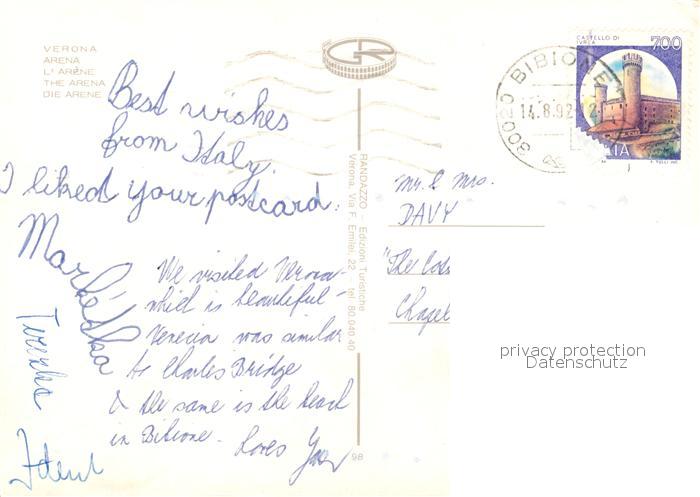 VERONA
ARENA
L' ARÈNE
THE ARENA
DIE ARENE
Best wishes
from Italy.
I liked your postcard.
Markétka
Terezka
Zdeně
We visited Verona -
which is beautiful -
Venecia was similar
to Charles Bridge
& the same is the beach
in Bibione. Loves
RANDAZZO Edizioni Turistiche
Verona, Via F. Emilei, 22 tel. 80.040 40
98
CASTELLO DI
IVREA
700
30020 BIBIONE
14.8.92 12
Mr. & Mrs.
DAVY
"The
Chapel
privacy protection
Datenschutz